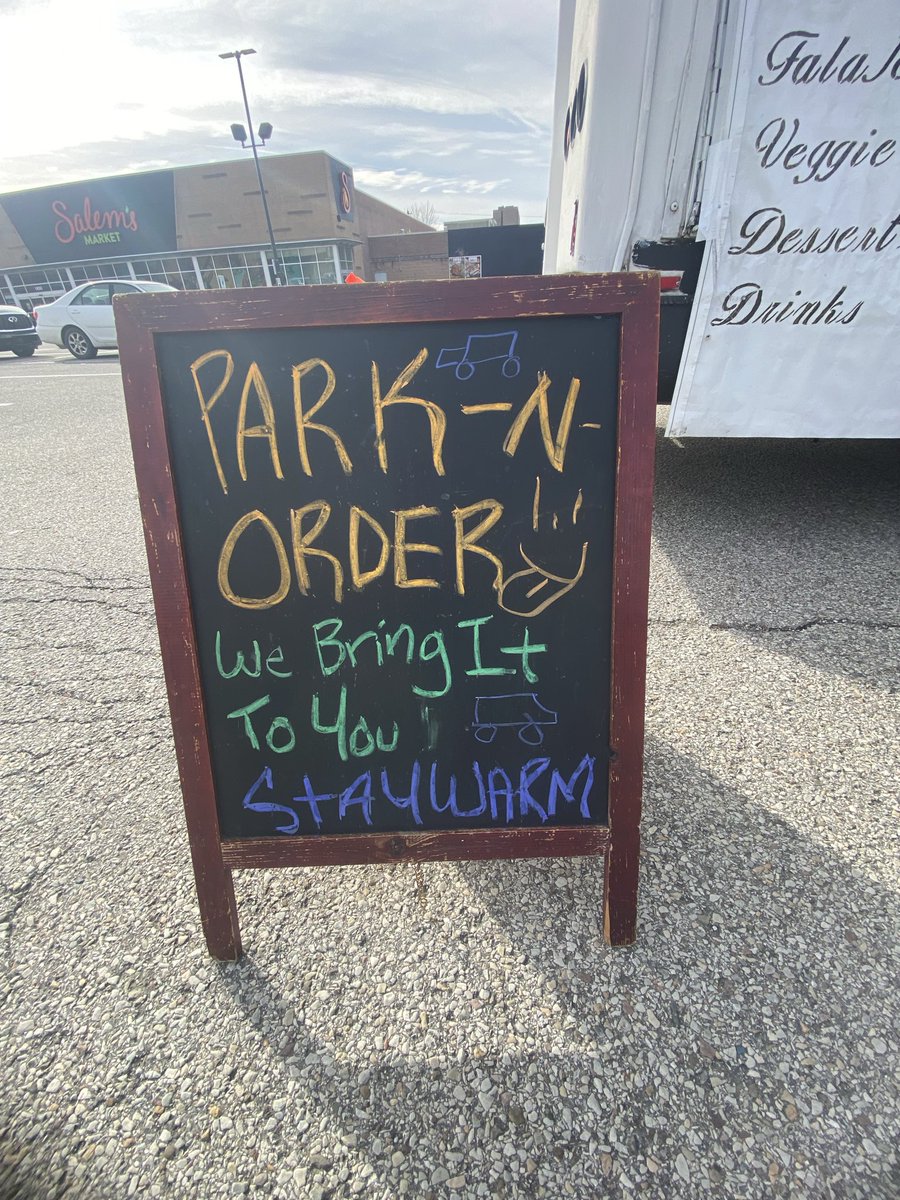 Salem's
MARKET
Veggie
Dessert
Drinks
PARK-N-
ORDER
We Bring It
To You!
STAY WARM